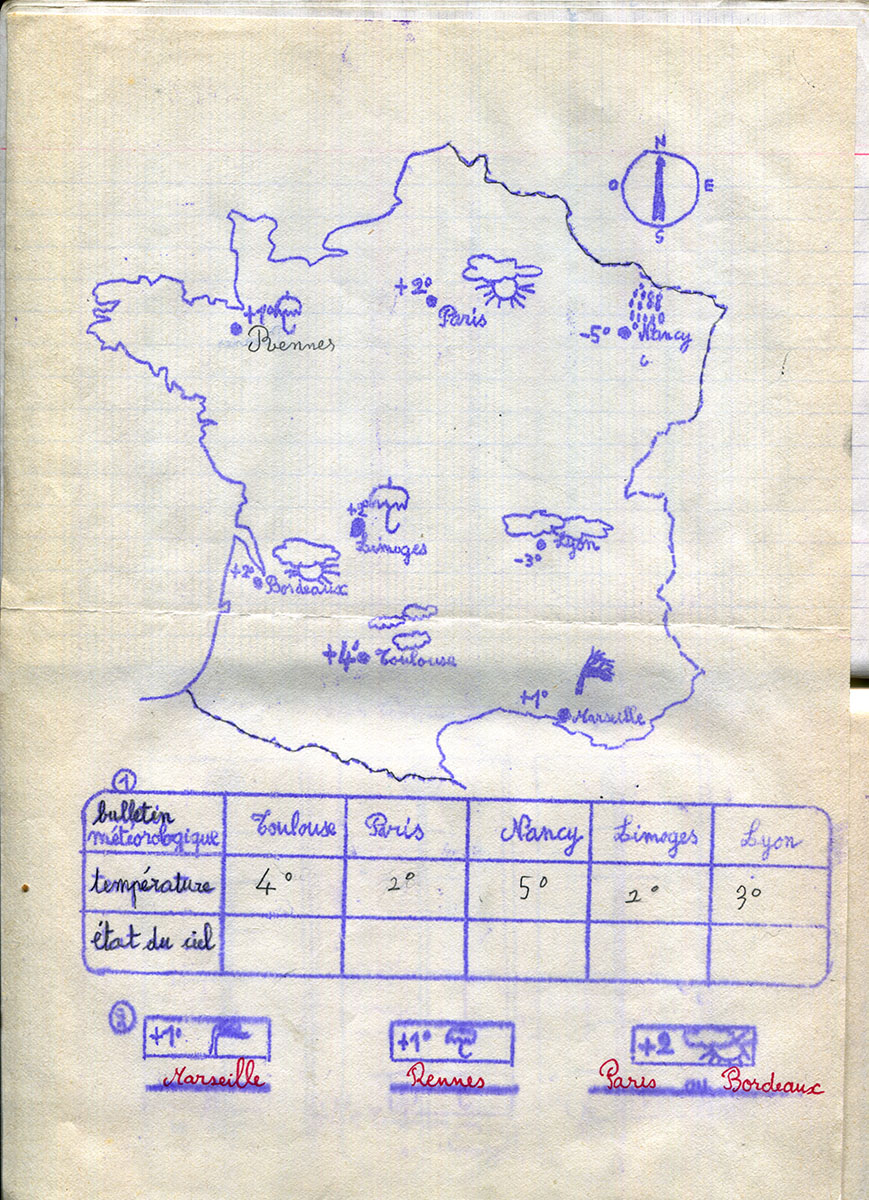 N
O E
S
+2°
Paris
+1°
Rennes
-5° Nancy
+2°
Limoges
Lyon
-3°
+2° Bordeaux
+4° Toulouse
+1°
Marseille
1
bulletin météorologique Toulouse Paris Nancy Limoges Lyon
température 4° 2° 5° 2° 3°
état du ciel
2
+1° +1° +2
Marseille Rennes Paris ou Bordeaux